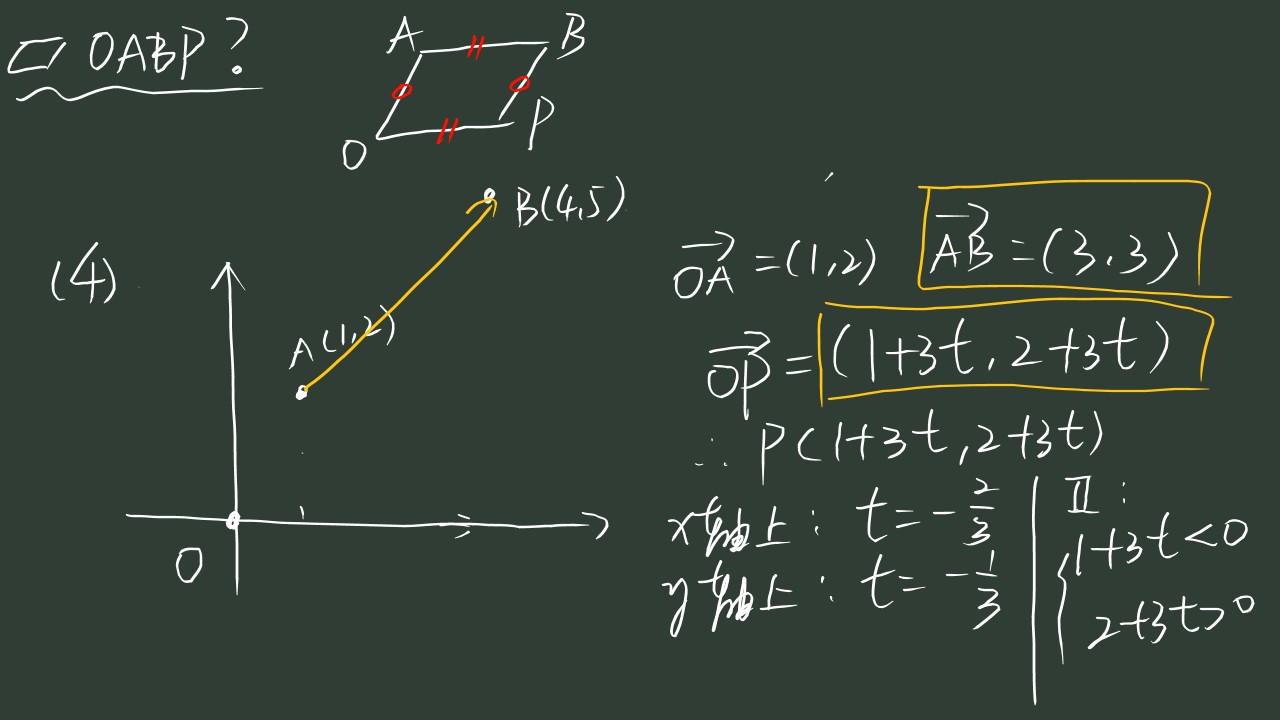 ▱ OABP?
A B
O P
(4)
B(4,5)
A(1,2)
O
\overrightarrow{OA} = (1,2) \overrightarrow{AB} = (3,3)
\overrightarrow{OP} = (1+3t, 2+3t)
∴ P(1+3t, 2+3t)
x轴上: t = -\frac{2}{3}
y轴上: t = -\frac{1}{3}
Ⅱ:
{1+3t<0
2+3t>0